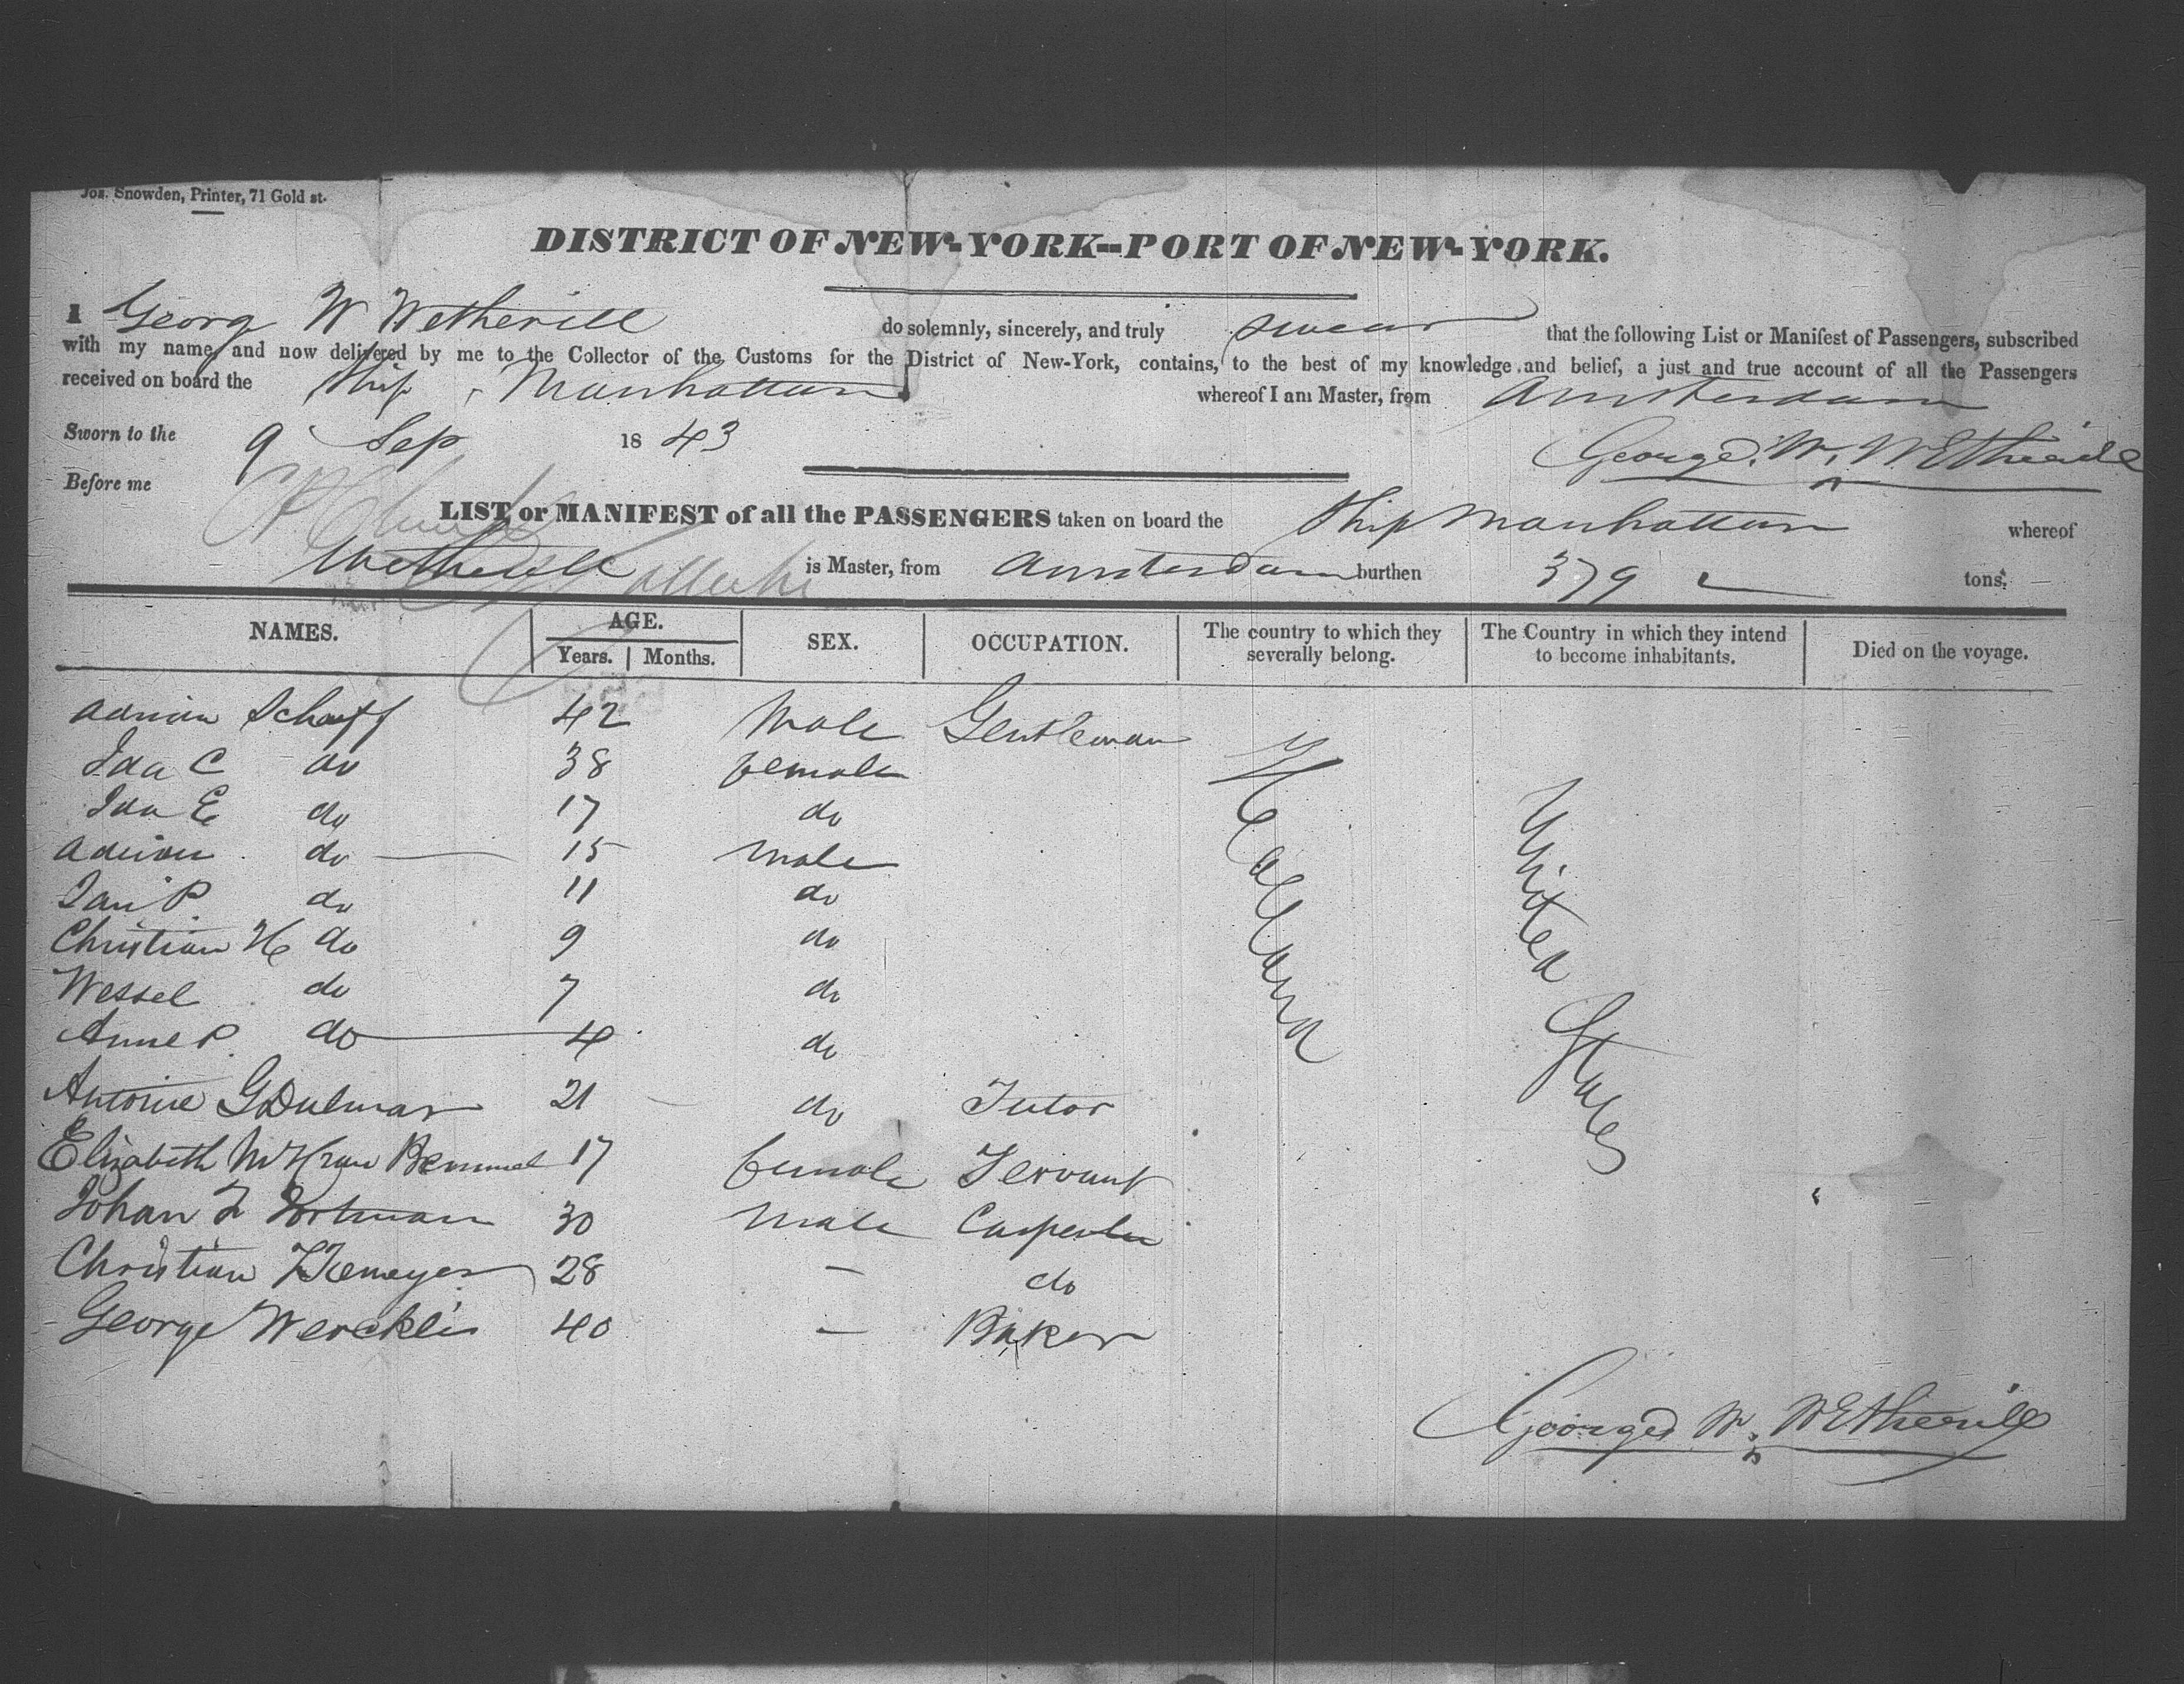 Jos. Snowden, Printer, 71 Gold st.
DISTRICT OF NEW-YORK--PORT OF NEW-YORK.
I Georg W Wetherill do solemnly, sincerely, and truly swear that the following List or Manifest of Passengers, subscribed
with my name, and now delivered by me to the Collector of the Customs for the District of New-York, contains, to the best of my knowledge and belief, a just and true account of all the Passengers
received on board the Ship Manhattan whereof I am Master, from Amsterdam
Sworn to the 9 Sep 1843 George W. Wetherill
Before me
LIST or MANIFEST of all the PASSENGERS taken on board the Ship Manhattan whereof
Wetherill is Master, from Amsterdam burthen 379 tons.
NAMES. AGE. SEX. OCCUPATION. The country to which they severally belong. The Country in which they intend to become inhabitants. Died on the voyage.
Years. Months.
Adrian Scharff 42 Male Gentleman
Ida C do 38 female
Ida E do 17 do
Adrian do 15 Male
Jan P do 11 do
Christian H do 9 do
Wessel do 7 do
Anne P. do 4 do
Antoine G Dulmar 21 do Tutor
Elizabeth Bemmel 17 female Servant
Johan F Portman 30 Male Carpenter
Christian 28 – do
George Wercklin 40 – Baker
Holland
United States
George W. Wetherill